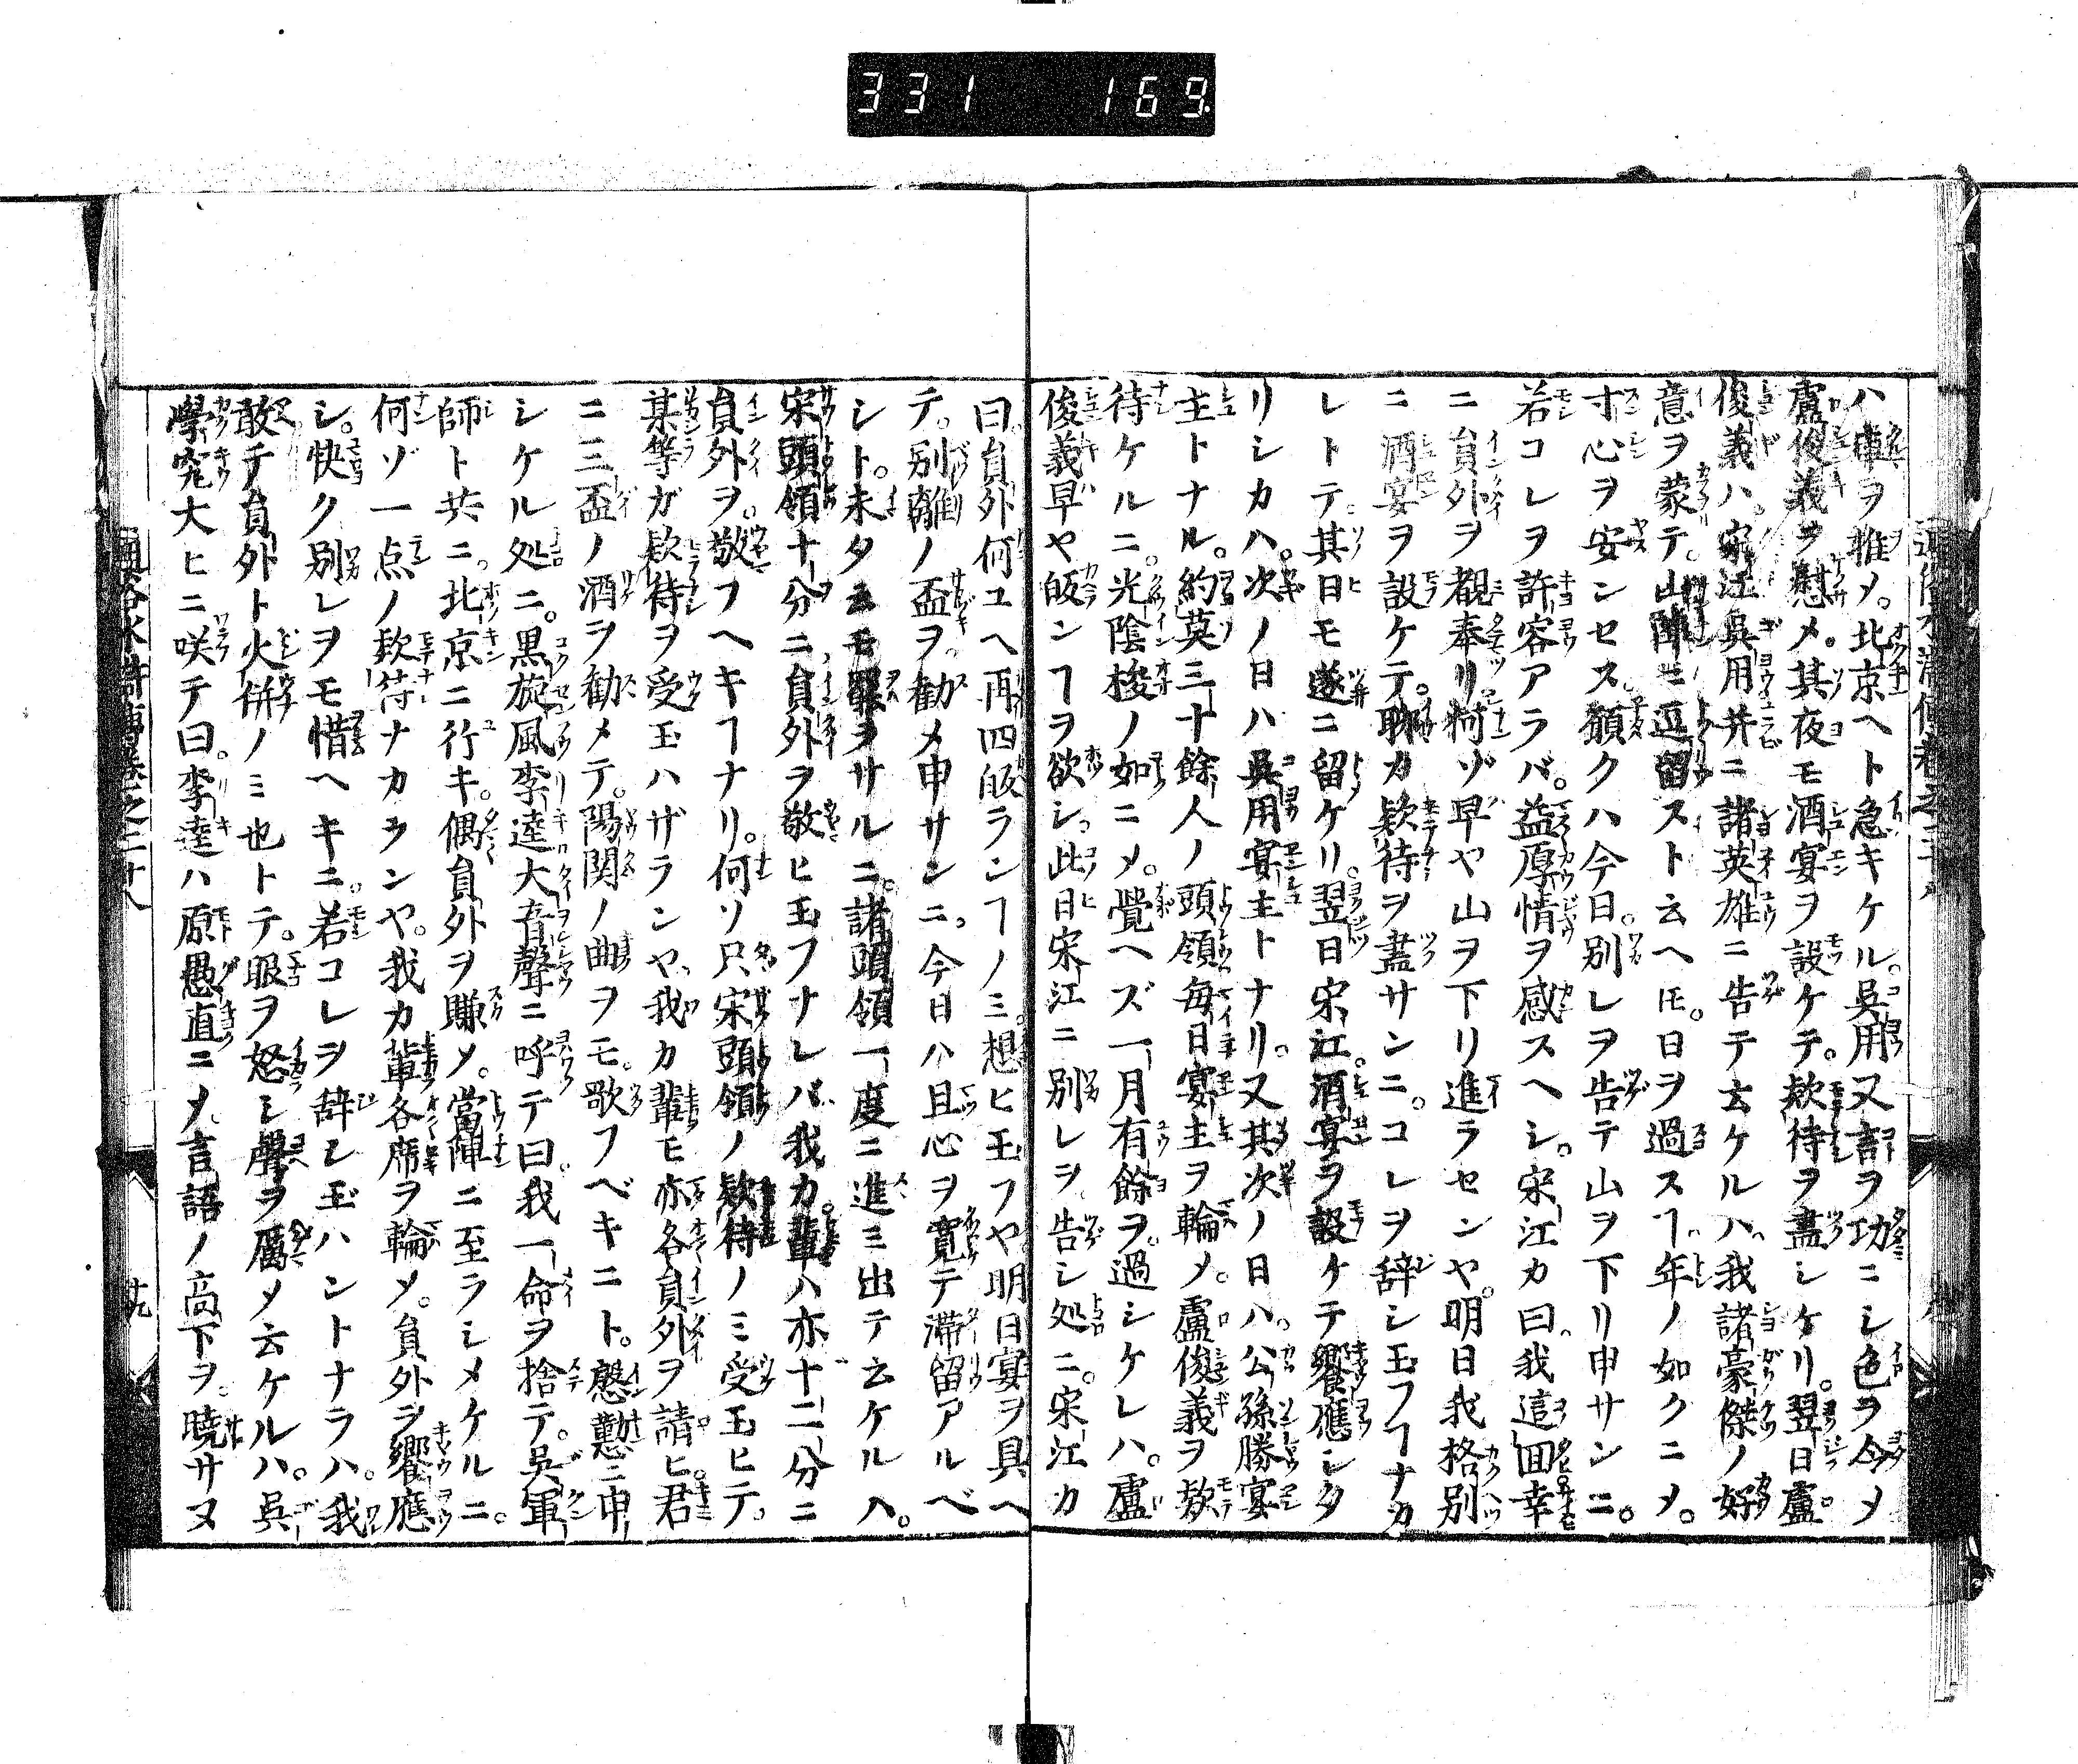 331 169.
ハ車ヲ推メ。北京ヘト急キケル。呉用又言ヲ功ニシ色ヲ令メ
盧俊義ヲ慰メ。其夜モ酒宴ヲ設ケテ。欵待ヲ盡シケリ。翌日盧
俊義ハ。宋江呉用并ニ諸英雄ニ告テ云ケルハ。我諸豪傑ノ好
意ヲ蒙テ。山陣ニ逗留ストヘ云ヘ𪜈。日ヲ過スヿ年ノ如クニメ。
寸心ヲ安ンセス。願クハ今日。別レヲ告テ山ヲ下リ申サンニ。
若コレヲ許容アラバ。益厚情ヲ感スヘシ。宋江カ曰。我這囬幸
ニ員外ヲ覩奉リ。何ゾ早ヤ山ヲ下リ進ラセンヤ。明日我格別
ニ酒宴ヲ設ケテ。聊カ欵待ヲ盡サンニ。コレヲ辞シ玉フヿナカ
レトテ。其日モ遂ニ留ケリ。翌日宋江。酒宴ヲ設ケテ饗應シタ
リシカハ。次ノ日ハ呉用宴主トナリ。又其次ノ日ハ。公孫勝宴
主トナル。約莫三十餘人ノ頭領毎日宴主ヲ輪メ。盧俊義ヲ欵
待ケルニ。光陰梭ノ如ニメ。覺ヘズ一月有餘ヲ。過シケレハ。盧
俊義早ヤ皈ンヿヲ欲シ。此日宋江ニ別レヲ告シ処ニ。宋江カ
曰。員外何ユヘ再四皈ランヿノミ想ヒ玉フヤ明日宴ヲ具ヘ
テ。別離ノ盃ヲ。勧メ申サンニ。今日ハ且心ヲ寛テ滞留アルベ
シト。未タ云モ罷ヲサルニ。諸頭領一度ニ進ミ出テ云ケルハ。
宋頭領十分ニ員外ヲ敬ヒ玉フナレバ。我カ輩ハ亦十二分ニ
員外ヲ。敬フヘキヿナリ。何ソ只宋頭領ノ欵待ノミ受玉ヒテ。
某等ガ欵待ヲ受玉ハザランヤ。我カ輩モ亦各員外ヲ請ヒ。君
ニ三盃ノ酒ヲ勧メテ。陽関ノ曲ヲモ。歌フベキニト。慇懃ニ申
シケル処ニ。黒旋風李逵大音聲ニ呼テ曰。我一命ヲ捨テ。呉軍
師ト共ニ。北京ニ行キ。偶員外ヲ賺メ。當陣ニ至ラシメケルニ。
何ゾ一点ノ欵待ナカランヤ。我カ輩各席ヲ輪メ。員外ヲ饗應
シ。快ク別レヲモ惜ヘキニ。若コレヲ辞シ玉ハントナラハ。我
敢テ員外ト火併ノミ也トテ。眼ヲ怒シ聲ヲ厲メ云ケルハ。呉
學究大ヒニ咲テ曰。李逵ハ原愚直ニメ。言語ノ高下ヲ。曉サヌ
通俗水滸傳卷之二十八
廿九